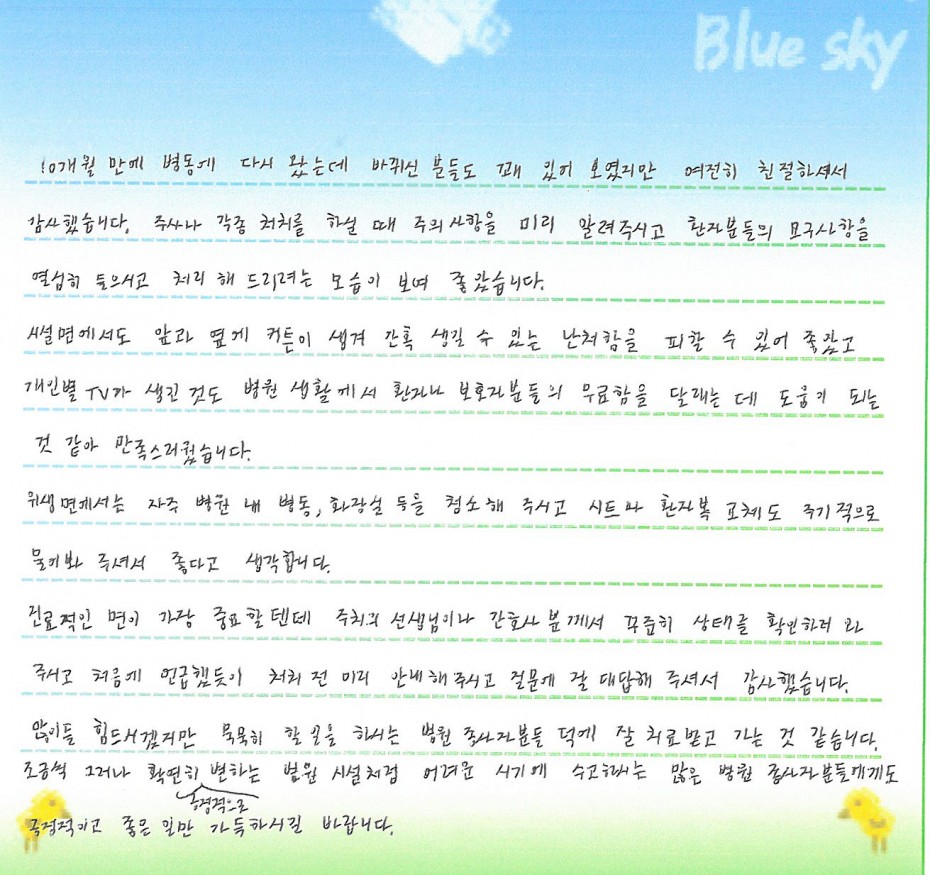 Blue sky
10개월 만에 병동에 다시 왔는데 바뀌신 분들도 꽤 있어 보였지만 여전히 친절하셔서
감사했습니다. 주사나 각종 처치를 하실 때 주의사항을 미리 알려주시고 환자분들의 요구사항을
열심히 들으시고 처리 해 드리려는 모습이 보여 좋았습니다.
시설면에서도 앞과 옆에 커튼이 생겨 간혹 생길 수 있는 난처함을 피할 수 있어 좋았고
개인별 TV가 생긴 것도 병원 생활에서 환자나 보호자분들의 무료함을 달래는 데 도움이 되는
것 같아 만족스러웠습니다.
위생면에서는 자주 병원 내 병동, 화장실 등을 청소해 주시고 시트나 환자복 교체도 주기적으로
물어봐 주셔서 좋다고 생각합니다.
진료적인 면이 가장 중요할텐데 주치의 선생님이나 간호사 분께서 꾸준히 상태를 확인하러 와
주시고 처음에 언급했듯이 처치 전 미리 안내해주시고 질문에 잘 대답해 주셔서 감사했습니다.
많이들 힘드시겠지만 묵묵히 할 일을 하시는 병원 종사자분들 덕에 잘 치료받고 가는 것 같습니다.
조금씩 그러나 확연히 변하는 병원 시설처럼 어려운 시기에 수고하시는 많은 병원 종사자분들에게도
긍정적으로
긍정적이고 좋은 일만 가득하시길 바랍니다.